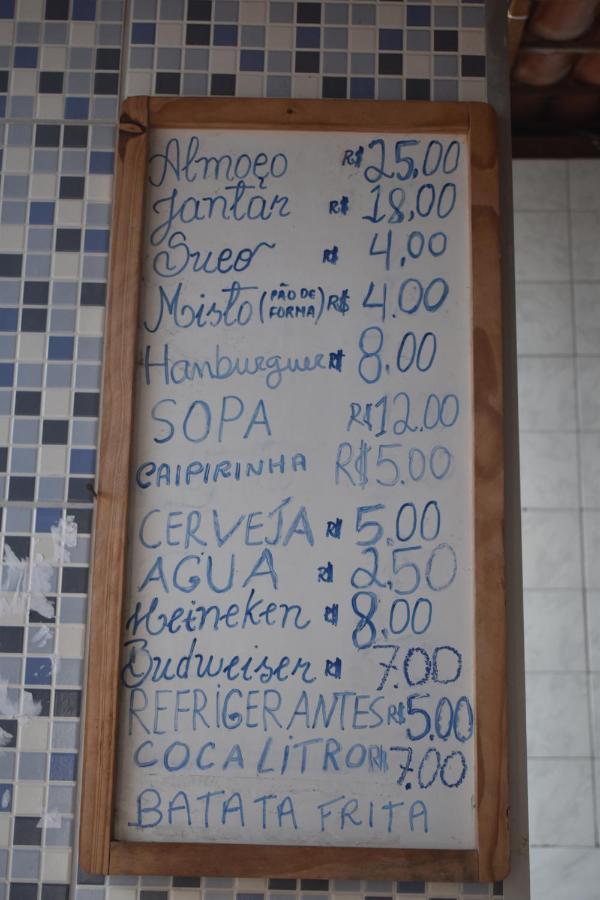 Almoço R$ 25,00
Jantar R$ 18,00
Suco R$ 4,00
Misto (PÃO DE FORMA) R$ 4.00
Hamburguer R$ 8.00
SOPA R$ 12.00
CAIPIRINHA R$ 5.00
CERVEJA R$ 5.00
AGUA R$ 2.50
Heineken R$ 8.00
Budweiser R$ 7.00
REFRIGERANTES R$ 5.00
COCA LITRO R$ 7.00
BATATA FRITA